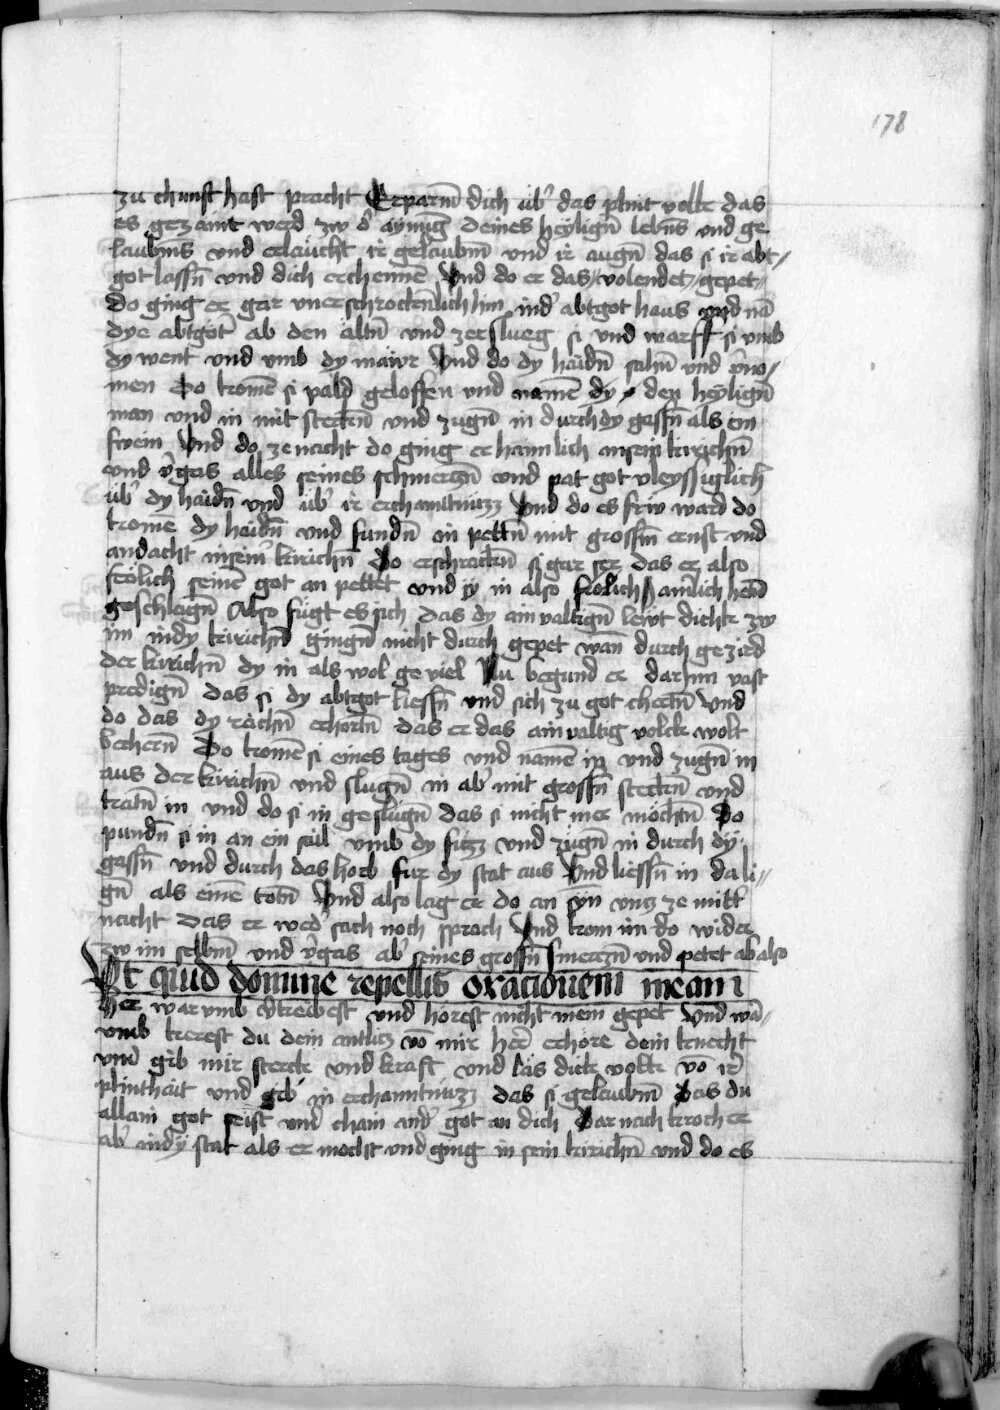 178
zu chunft hast pracht Erparm̄ dich üb' das plint volkt das
es gezaint werd zw d' aynūg deines heyligñ lebn̄s vnd ge
laubn̄s vnd erleucht ir gelaubm̄ vnd ir augn̄ das si ir abt⸗
got lassn̄ vnd dich erchennē Vnd do er das volendet gepet
do ging er gar vnerschrockenlich hin ind' abtgot haus vnd nā
dye abtgöt' ab den altn̄ vnd zerslueg si vnd warff si vmb
dy went vnd vmb dy mawr Vnd do dy haidn̄ sahn̄ vnd v'no⸗
men Do komē si pald geloffen vnd namē dy den heylign̄
man vnd in mit steckn̄ vnd zugn̄ in durch dy gassn̄ als ein
swein Vnd do ze nacht do ging er haimlich in sein kirichn̄
vnd v'gas alles seines schmerczn̄ vnd pat got vleyssiglich
üb' dy haidn̄ vnd üb' ir erchantnüzz Vnd do es frw ward do
komē dy haidn̄ vnd fundn̄ in pettn̄ mit grossm̄ ernst vnd
andacht in sein' kirichn̄ Do erschrackn̄ si gar ser das er also
frölich seinē got an pettet vnd sy in also frölich s amlich hetn̄
geschlagn̄ Also fügt es sich das dy ainvaltign̄ lewt dickt zw
im in dy kirichn̄ gingn̄ nicht durch gepet wan̄ durch gezird
der kirichn̄ dy in als wol geviel Nu begund er darjnn vast
predign̄ das si dy abtgot liessn̄ vnd sich zu got chertn̄ Vnd
do das dy rächn̄ erhortn̄ das er das ainvaltig volck wolt
bechern̄ Do komē si eines tages vnd namē in vnd zugn̄ in
aus der kirichn̄ vnd slugn̄ in ab' mit grossn̄ steckn̄ vnd
tratn̄ in vnd do si in geslugn̄ das si nicht mer möchtn̄ Do
pundn̄ si in an ein sail vmb dy füzz vnd zugn̄ in durch dy
gassn̄ vnd durch das horb fur dy stat aus Vnd liessn̄ in da li⸗
gn̄ als einē totn̄ Vnd also lag er do an syn̄ vntz ze mitt'
nacht das er wed' sach noch sprach Vnd kom im do wider
zw im selbm̄ vnd v'gas ab' seines grossn̄ smerczn̄ vnd petet ab also
Ut quid domine repellis orationem meam
Her warumb v'treibest vnd horest nicht mein gepet Vnd wa⸗
rumb kerest du dein antlitz vō mir herr erhöre dein knecht
vnd gib mir sterck vnd kraft vnd las dick volkt vō ir'
plinthait vnd gib in erchanntnüzz das si gelaubm̄ Das du
allain got seist vnd chain and' got an dich Darnach kroch er
ab' in dy stat als er mocht vnd ging in sein kirichn̄ vnd do es